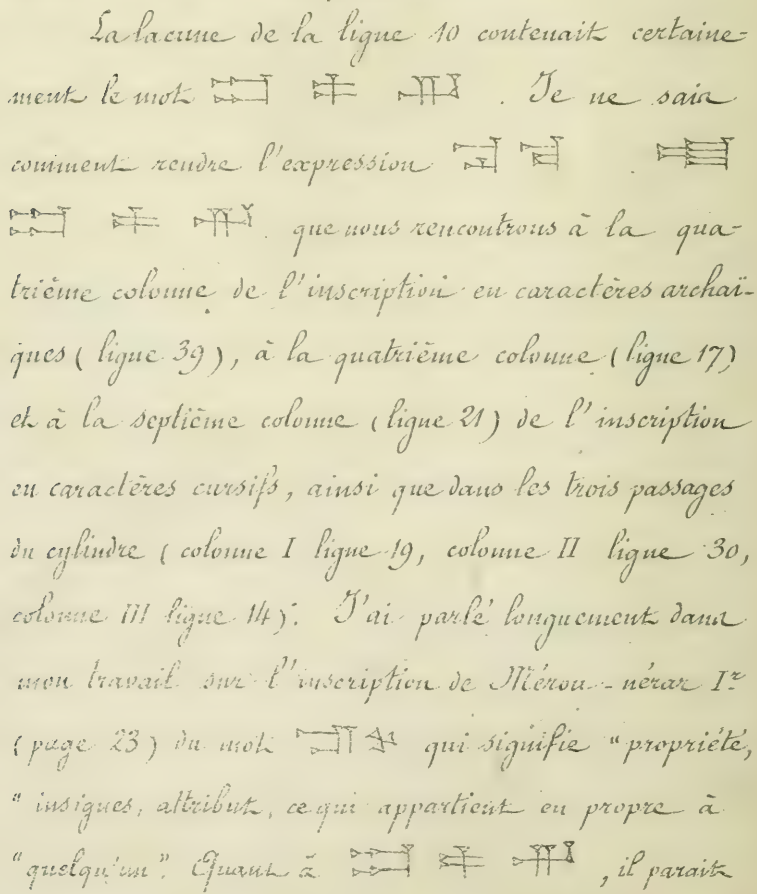 La lacune de la ligne 10 contenait certaine-
ment le mot . Je ne sais
comment rendre l'expression
que nous rencontrons à la qua-
trième colonne de l'inscription en caractères archaï-
ques (ligne 39), à la quatrième colonne (ligne 17)
et à la septième colonne (ligne 21) de l'inscription
en caractères cursifs, ainsi que dans les trois passages
du cylindre (colonne I ligne 19, colonne II ligne 30,
colonne III ligne 14). J'ai parlé longuement dans
mon travail sur l'inscription de Mérou-nérar Ir
(page 23) du mot qui signifie "propriété,
"insignes, attribut, ce qui appartient en propre à
"quelqu'un". Quant à , il parait